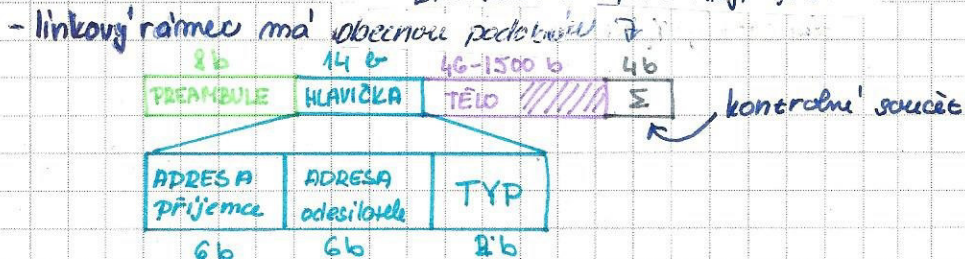 - linkový rámec má obecnou podobu
8b 14 b 46-1500 b 4b
PREAMBULE HLAVIČKA TĚLO Σ
kontrolní součet
ADRESA příjemce
ADRESA odesilatele
TYP
6b 6b 2b